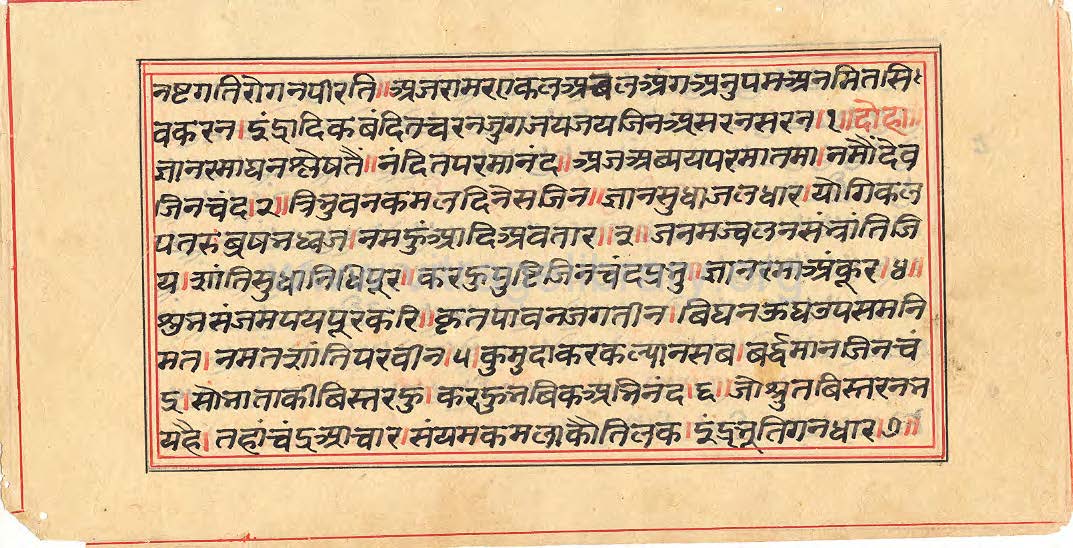 नष्टगतिरोगनपीरति॥अजरामरएकलअबलअंगअनुपमअनमितसि
वकरन।इंद्रादिकबंदितचरनजुगजयजयजिनअसरनसरन।१॥दोहा॥
ज्ञानरमाघनश्लेषतैं॥नंदितपरमानंद॥अजअव्ययपरमातमा।नमौंदेव
जिनचंद।२॥त्रिभुवनकमलदिनेसजिन॥ज्ञानसुधाजलधार।योगिकल
पतरुबृषभध्वज।नमहुंआदिअवतार॥३॥जनमज्वलनसंभ्रांतिजि
य।शांतिसुधानिधिपूर॥करहुपुष्टिजिनचंदप्रभु॥ज्ञानरमाअंकूर।४॥
शुभसंजमपयपूरकरि॥कृतपावनजगतीन।बिघनऊघउपसमनि
मत।नमतशांतिपरवीन।५।कुमुदाकरकल्यानसब।बर्द्धमानजिनचं
द्र।सोभाताकीबिस्तरहु।करहुभबिकअभिनंद।६।जोश्रुतबिस्तरनभ
यहै।तहांचंद्रआचार।संयमकमलाकौतिलक।इंद्रभूतिगनधार।७॥